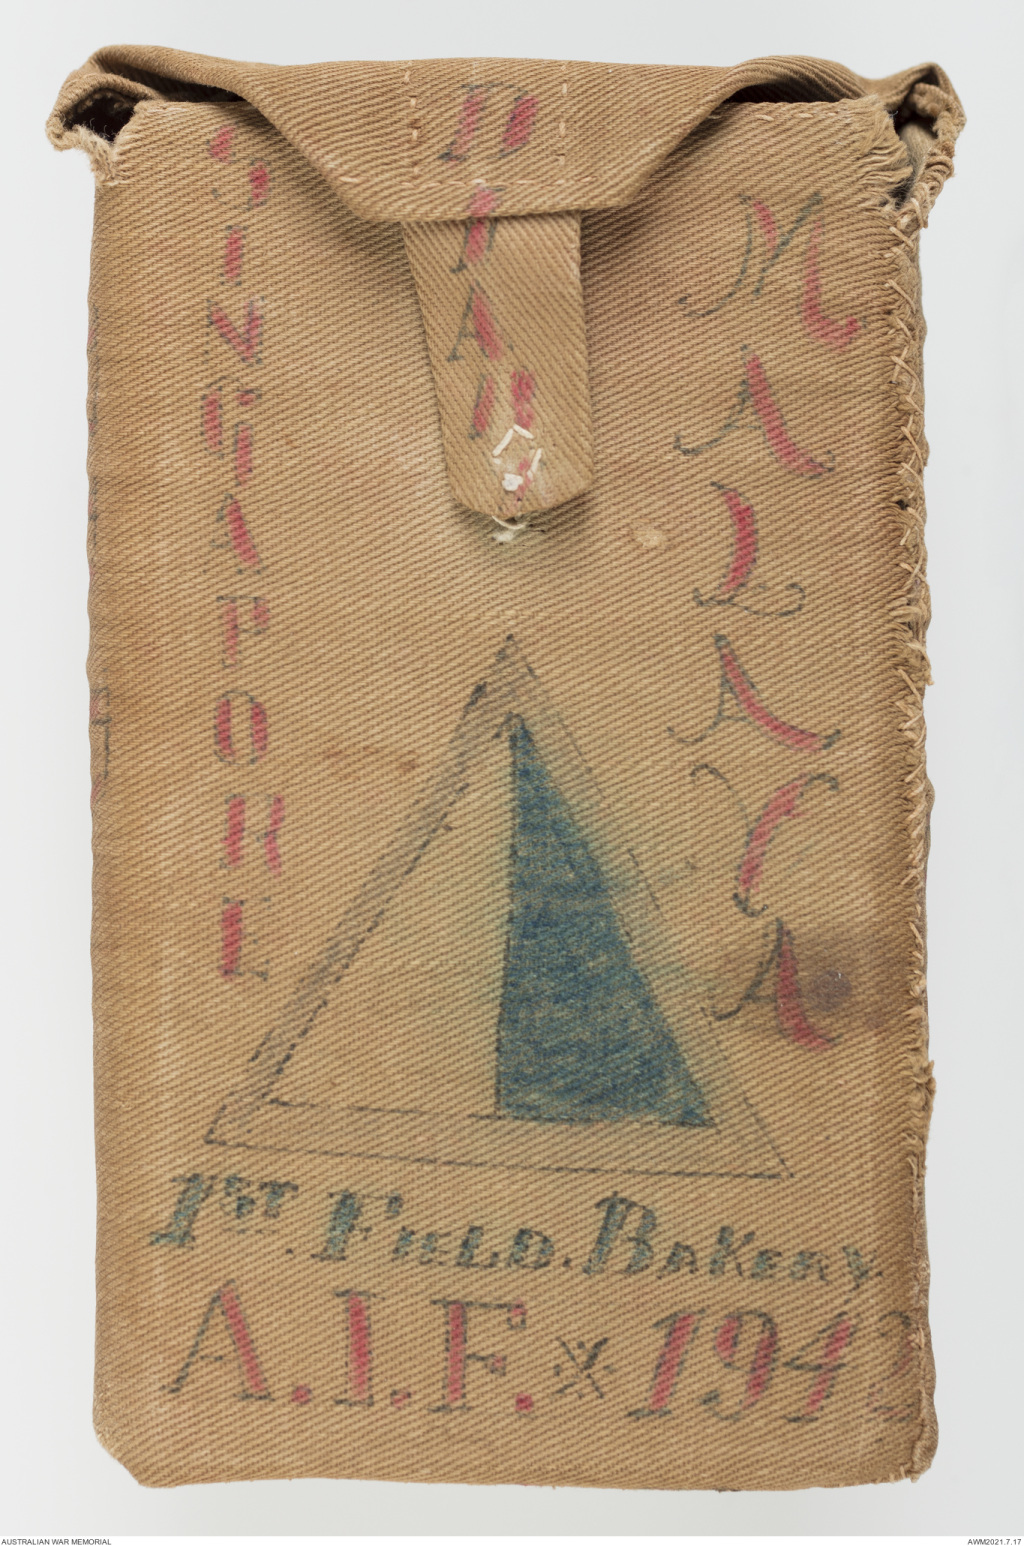 SINGAPORE
MALAYA
1ST. FIELD. BAKERY.
A.I.F. ※ 1942
AUSTRALIAN WAR MEMORIAL
AWM2021.7.17